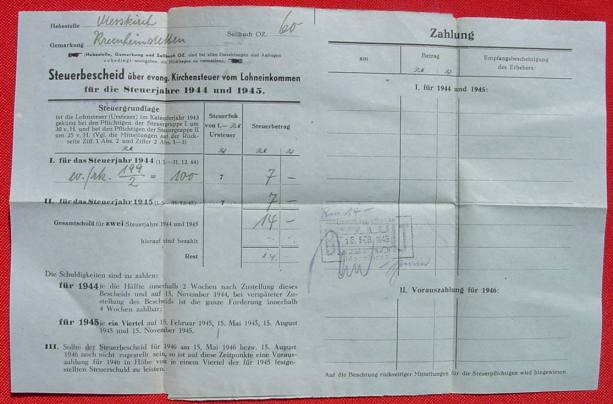 Hebestelle Messkirch
Sollbuch OZ. 60
Gemarkung Kreenheinstetten
(Hebestelle, Gemarkung und Sollbuch OZ. sind bei allen Einzahlungen und Anfragen
unbedingt anzugeben, um Rückfragen zu vermeiden).
Steuerbescheid über evang. Kirchensteuer vom Lohneinkommen
für die Steuerjahre 1944 und 1945.
Steuergrundlage
ist die Lohnsteuer (Ursteuer) im Kalenderjahr 1943
gekürzt bei den Pflichtigen der Steuergruppe I. um
30 v. H. und bei den Pflichtigen der Steuergruppe II
um 25 v. H. (Vgl. die Mitteilungen auf der Rück-
seite Ziff. 1 Abs. 2 und Ziffer 2 Abs. 1—3)
Rℳ
Steuerfuß
von 1.— Rℳ
Ursteuer
Rpf
Steuerbetrag
Rℳ Rpf
I. für das Steuerjahr 1944 (1.1.—31. 12. 44)
ev./rk. 199/2 = 100 7 7 —
II. für das Steuerjahr 1945 (1.1.—31. 12. 45) 7 7 —
Gesamtschuld für zwei Steuerjahre 1944 und 1945 14 —
hierauf sind bezahlt
Rest 14 —
Die Schuldigkeiten sind zu zahlen:
für 1944 je die Hälfte innerhalb 2 Wochen nach Zustellung dieses
Bescheids und auf 15. November 1944, bei verspäteter Zu-
stellung des Bescheids ist die ganze Forderung innerhalb
4 Wochen zahlbar;
für 1945 je ein Viertel auf 15. Februar 1945, 15. Mai 1945, 15. August
1945 und 15. November 1945.
III. Sollte der Steuerbescheid für 1946 am 15. Mai 1946 bezw. 15. August
1946 noch nicht zugestellt sein, so ist auf diese Zeitpunkte eine Voraus-
zahlung für 1946 in Höhe von je einem Viertel der für 1945 festge-
stellten Steuerschuld zu leisten.
Zahlung
am
Betrag
Rℳ Rpf
Empfangsbescheinigung
des Erhebers:
I. für 1944 und 1945:
14 —
BEZAHLT
II. Vorauszahlung für 1946:
Auf die Beachtung rückseitiger Mitteilungen für die Steuerpflichtigen wird hingewiesen